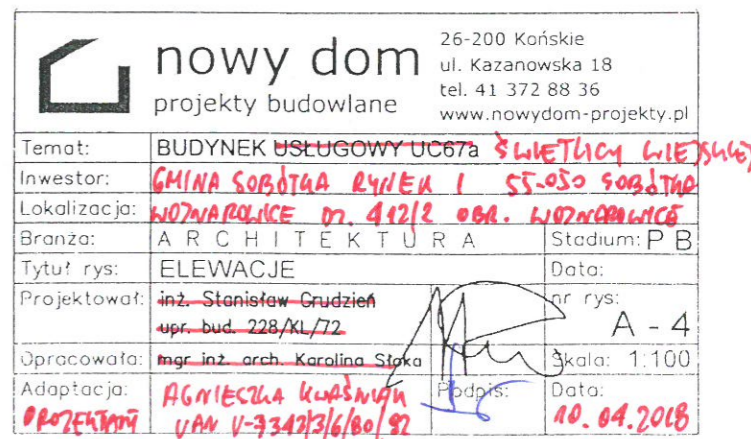 nowy dom
projekty budowlane
26-200 Końskie
ul. Kazanowska 18
tel. 41 372 88 36
www.nowydom-projekty.pl
Temat: BUDYNEK USŁUGOWY UC67a ŚWIETLICY WIEJSKIEJ
Inwestor: GMINA SOBÓTKA RYNEK 1 55-050 SOBÓTKA
Lokalizacja: WOJNAROWICE DZ. 412/2 OBR. WOJNAROWICE
Branża: ARCHITEKTURA Stadium: PB
Tytuł rys: ELEWACJE Data:
Projektował: inż. Stanisław Grudzień nr rys:
upr. bud. 228/KL/72 A - 4
Opracowała: mgr inż. arch. Karolina Słoka Skala: 1:100
Adaptacja: AGNIESZKA KWAŚNIAK Podpis: Data:
UAN V-7342/3/6/80/92 10.04.2018